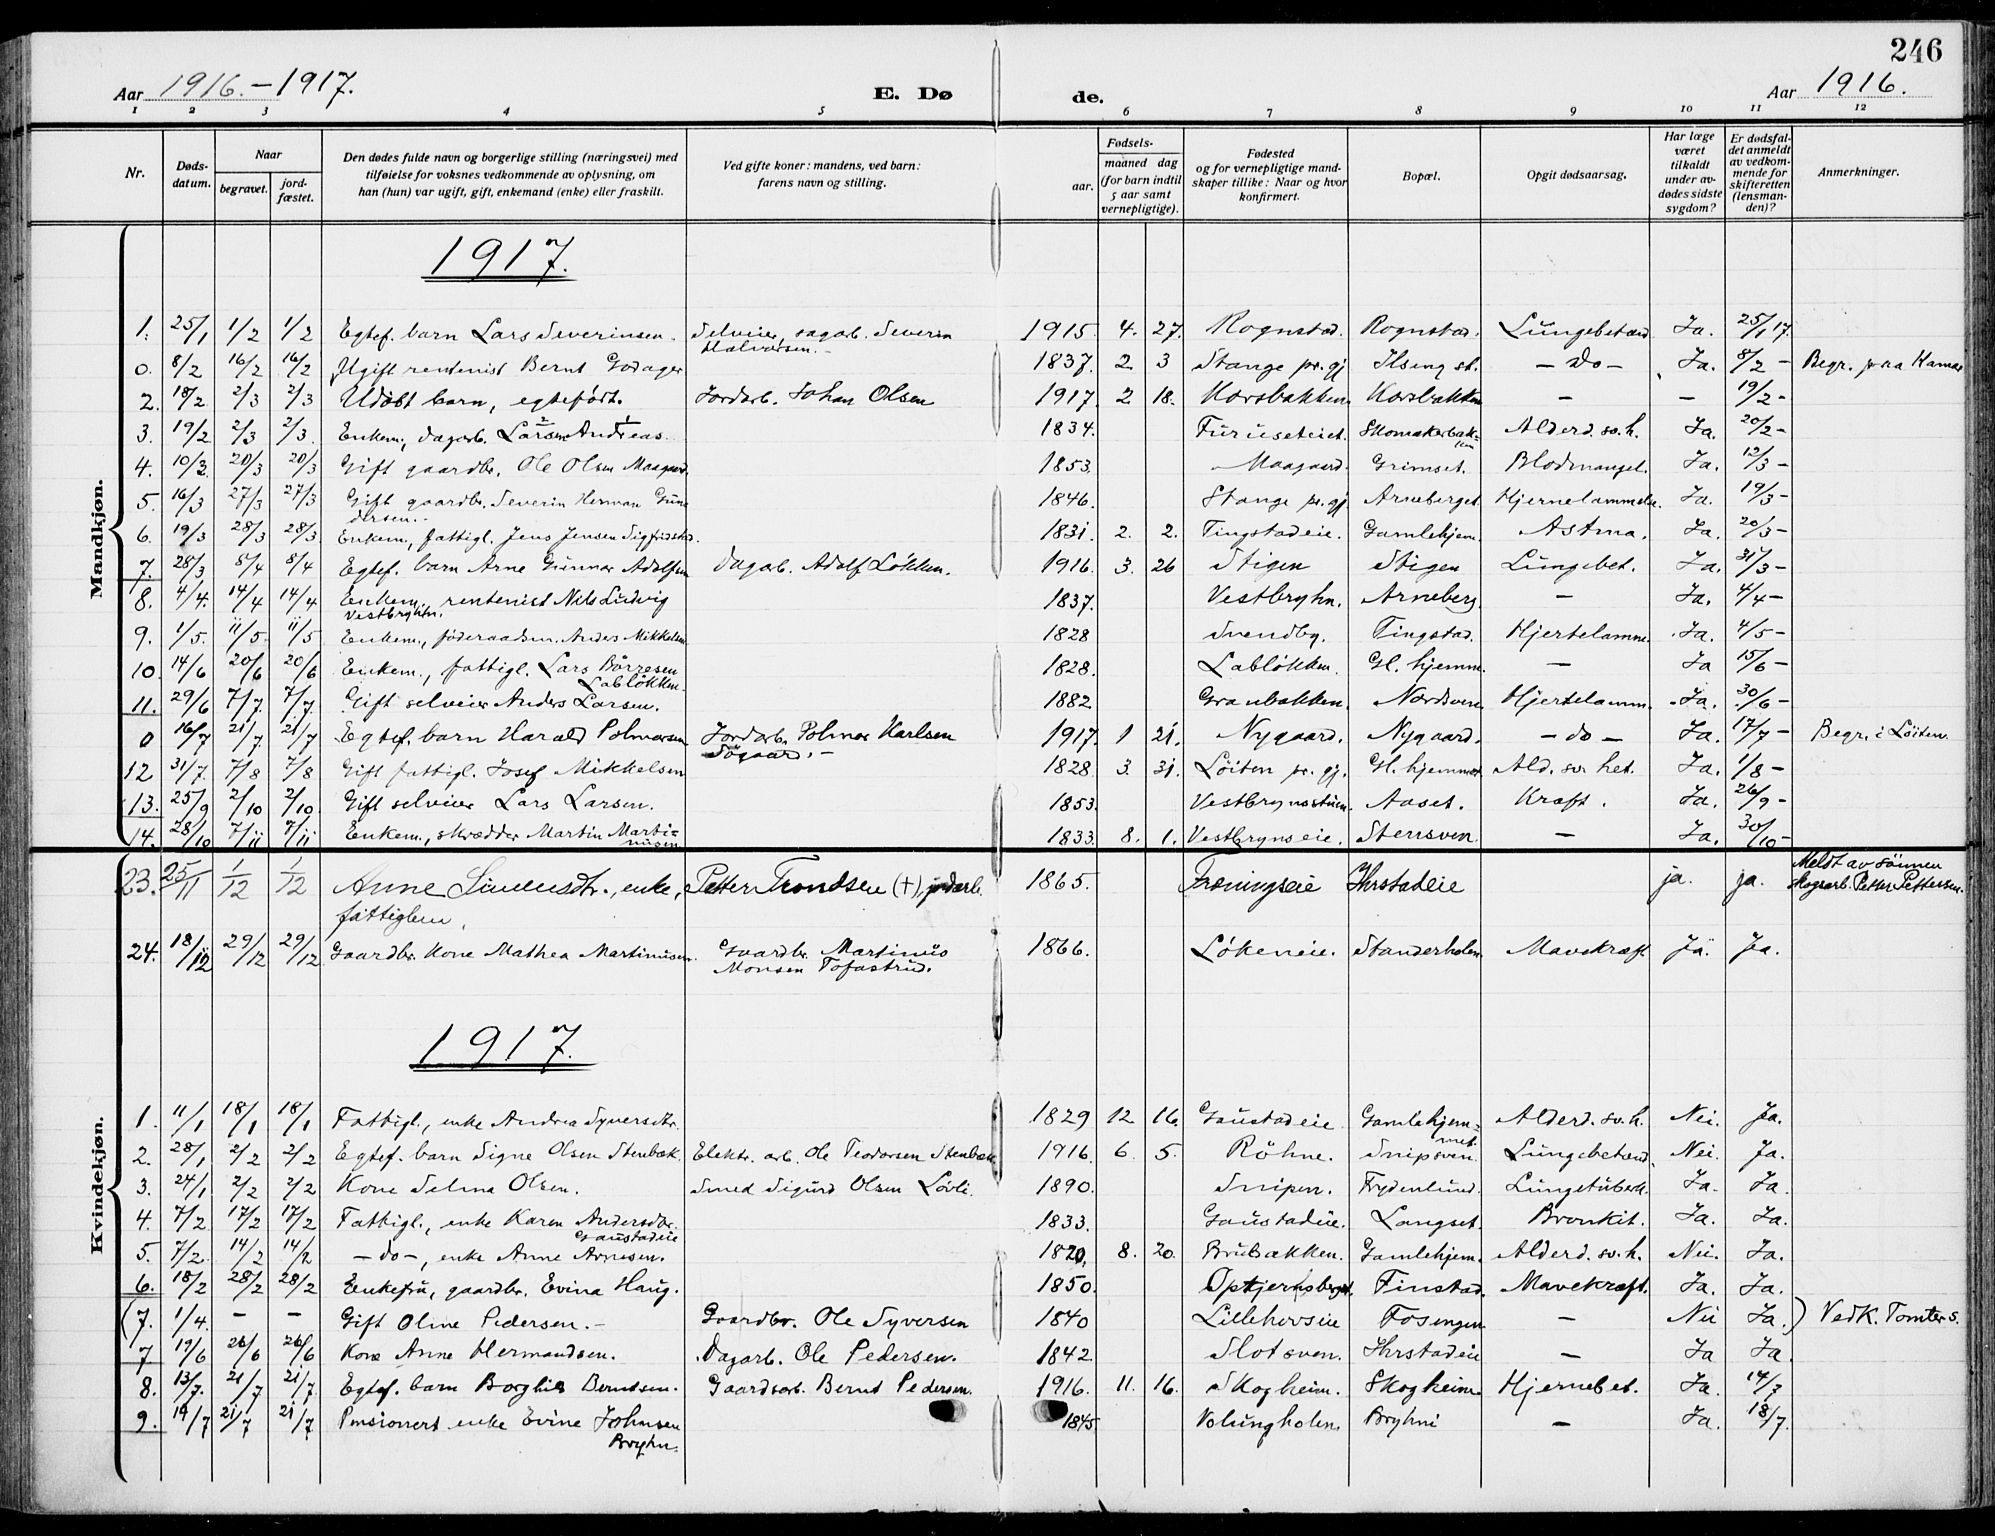 246
Aar 1916.–1917. E. Dø de. Aar 1916.
1 2 3 4 5 6 7 8 9 10 11 12
Nr.
Døds-
datum.
Naar
begravet.
jord-
fæstet.
Den dødes fulde navn og borgerlige stilling (næringsvei) med
tilføielse for voksnes vedkommende av oplysning, om
han (hun) var ugift, gift, enkemand (enke) eller fraskilt.
Ved gifte koner: mandens, ved barn:
farens navn og stilling.
Fødsels-
aar.
maaned dag
(for barn indtil
5 aar samt
vernepligtige).
Fødested
og for vernepligtige mand-
skaper tillike: Naar og hvor
konfirmert.
Bopæl.
Opgit dødsaarsag.
Har læge
været
tilkaldt
under av-
dødes sidste
sygdom?
Er dødsfal-
det anmeldt
av vedkom-
mende for
skifteretten
(lensman-
den)?
Anmerkninger.
Mandkjøn.
1917.
1. 25/1 1/2 1/2 Egtef. barn Lars Severinsen. Selveier, sagarb. Severin 1915. 4. 27. Rognstad. Rognstad. Lungebetænd. Ja. 25/1 17.
Halvorsen.–
0. 8/2 16/2 16/2 Ugift rentenist Bernt Godager 1837. 2. 3 Stange pr.gj. Ilseng st. – do – Ja. 8/2 – Begr. paa Hamar
2. 18/2 2/3 2/3 Udøbt barn, egteført. Jordarb. Johan Olsen 1917. 2 18. Korsbakken. Korsbakken – – 19/2 –
3. 19/2 2/3 2/3. Enkem., dagarb. Larsen Andreas. 1834. Furuseteiet. Skomakerbak-
ken Alderd.sv.h. Ja. 20/2 –
4. 10/3 20/3 20/3 Gift gaardbr. Ole Olsen Maagaard. 1853. Maagaard. Grimset. Blodmangel. Ja. 12/3 –
5. 16/3 27/3 27/3 Gift gaardbr. Severin Herman Gun- 1846. Stange pr.gj. Arneberget. Hjernelammelse. Ja. 19/3 –
dersen.
6. 19/3 28/3 28/3 Enkem., fattigl. Jens Jensen Sigfridstad. 1831. 2. 2. Tingstadeie. Gamlehjem. Astma. Ja. 20/3 –
7. 28/3 8/4 8/4 Egtef. barn Arne Gunnar Adolfsen Dagarb. Adolf Løkken. 1916. 3. 26 Stigen Stigen Lungebet. Ja. 31/3 –
8. 4/4. 14/4 14/4 Enkem., rentenist Nils Ludvig 1837. Vestbryhn. Arneberg. – Ja. 4/4 –
Vestbryhn.
9. 1/5. 11/5 11/5 Enkem., føderaadsm. Anders Mikkelsen 1828 Svendby. Tingstad. Hjertelamme. Ja. 4/5 –
10. 14/6 20/6 20/6 Enkem., fattigl. Lars Børresen 1828. Labløkken. Gl. hjemm. – Ja 15/6 –
Labløkken.
11. 29/6 7/7. 7/7. Gift selveier Anders Larsen. 1882 Granbakken. Nordsven. Hjertelamm. Ja. 30/6 –
0 16/7 21/7. 21/7 Egtef. barn Harald Polmarsen Jordarb. Polmar Karlsen 1917. 1 21. Nygaard. Nygaard. – do – Ja. 17/7 – Begr. i Løiten.
Søgaard.–
12 31/7. 7/8 7/8 Gift fattigl. Josef Mikkelsen 1828. 3. 31. Løiten pr. gj. Gl. hjemmet Ald. sv. het. Ja. 1/8 –
13. 25/9 2/10 2/10 Gift selveier Lars Larsen. 1853. Vestbrynsstuen. Aaset. Kræft. Ja. 26/9 –
14. 28/10 7/11 7/11 Enkem., skrædder Martin Marti- 1833. 8. 1. Vestbrynseie. Stensven. – Ja. 30/10 –
nusen
Kvindekjøn.
23. 25/11 1/12 1/12 Anne Simensdtr., enke, Petter Trondsen (+), jordarb. 1865. Fræningseie Ihrstadeie ja. ja. Meldt av sønnen
fattiglem. Skogsarb. Petter Pettersen.
24. 18/12 29/12 29/12 Gaardbr. Kone Mathea Martinusen. Gaardbr. Martinus 1866. Løkeneie. Standerholen. Mavekræft. Ja. Ja.
Monsen Tofastrud.
1917.
1. 11/1 18/1 18/1 Fattigl., enke Andrea Syversdtr. 1829 12 16. Gaustadeie Gamlehjem-
met. Alderd.sv.h. Nei. Ja.
2. 28/1 2/2 2/2 Egtef. barn Signe Olsen Stenbæk. Elektr. arb. Ole Teodorsen Stenbæk 1916. 6. 5. Røhne. Snipsven. Lungebetænd. Nei. Ja.
3. 24/1 2/2 2/2 Kone Selma Olsen. Smed Sigurd Olsen Løvli. 1890. Snipen. Frydenlund. Lungetuberk. Ja. Ja.
4. 7/2. 17/2 17/2 Fattigl., enke Karen Andersdtr. 1833. Gaustadeie. Langset. Bronkit. Ja. Ja.
Gaustadeie
5. 7/2. 14/2 14/2 – do –, enke Anne Arnesen. 1820. 8. 20. Brubakken. Gamlehjem. Alderd.sv.h. Nei. Ja.
6. 18/2 28/2 28/2 Enkefru, gaardbr. Evina Haug. 1850. Optjernsberget. Finstad. Mavekræft. Ja. Ja.
(7. 1/4. – – Gift Oline Pedersen.– Gaardbr. Ole Syversen 1840 Lillehovseie Fosengen – Nei Ja.) Vedk. Tomter s.
7 19/6 26/6 26/6 Kone Anne Hermandsen. Dagarb. Ole Pedersen. 1842. Slotsven. Ihrstadeie – Ja Ja.
8. 13/7. 21/7 21/7. Egtef. barn Borghild Berntsen. Gaardsarb. Bernt Pedersen. 1916. 11. 16. Skogheim. Skogheim. Hjernebet. Ja. 14/7
9. 14/7 21/7 21/7 Pensionert enke Evine Johnsen 1845. Volungholen. Bryhni – Ja. 18/7.
Bryhn.